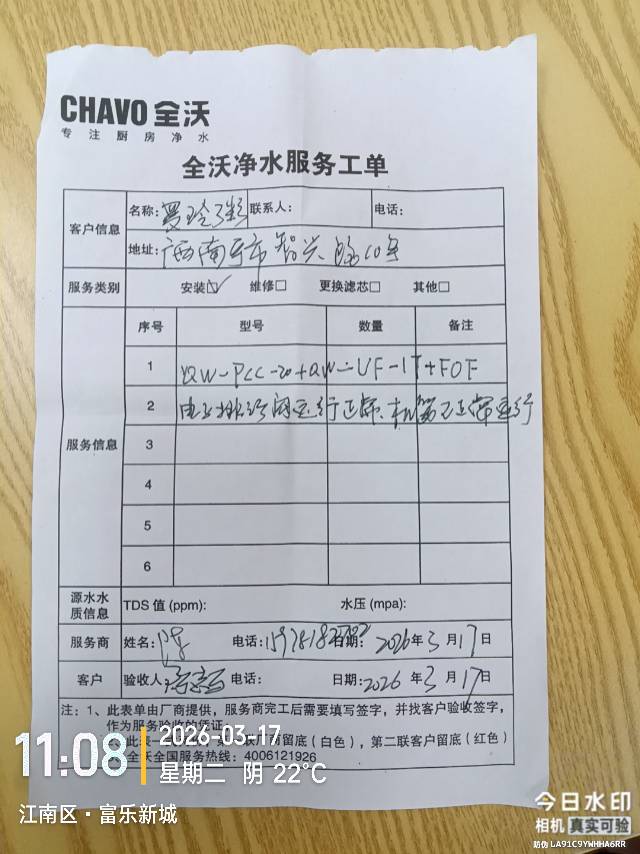 CHAVO 全沃
专注厨房净水
全沃净水服务工单
客户信息 名称: 联系人: 电话:
地址: 广西南宁市智兴路10号
服务类别 安装☑ 维修□ 更换滤芯□ 其他□
服务信息 序号 型号 数量 备注
1 QW-PCC-20+QW-UF-1T+FOF
2 运行正常、机器正常运行
3
4
5
6
源水水质信息 TDS 值 (ppm): 水压 (mpa):
服务商 姓名: 电话: 日期: 2026年3月17日
客户 验收人 电话: 日期: 2026年3月17日
注: 1、此表单由厂商提供，服务商完工后需要填写签字，并找客户验收签字，
作为服务验收的凭证。
此表一 留底（白色），第二联客户留底（红色）
全沃全国服务热线: 4006121926
11:08
2026-03-17
星期二 阴 22℃
江南区·富乐新城
今日水印
相机 真实可验
防伪 LA91C9YWHHA6RR